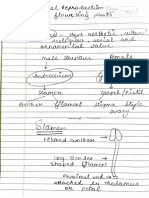 al Reproduction in
flowering plants
Have aesthetic, cultural
religious, social and
ornamental value
Male structure Female
Androecium
Stamen
anther filament stigma style
ovary
Stamen
anther
long slender
shaped filament
Proximal end
attached to thalamus
or petal